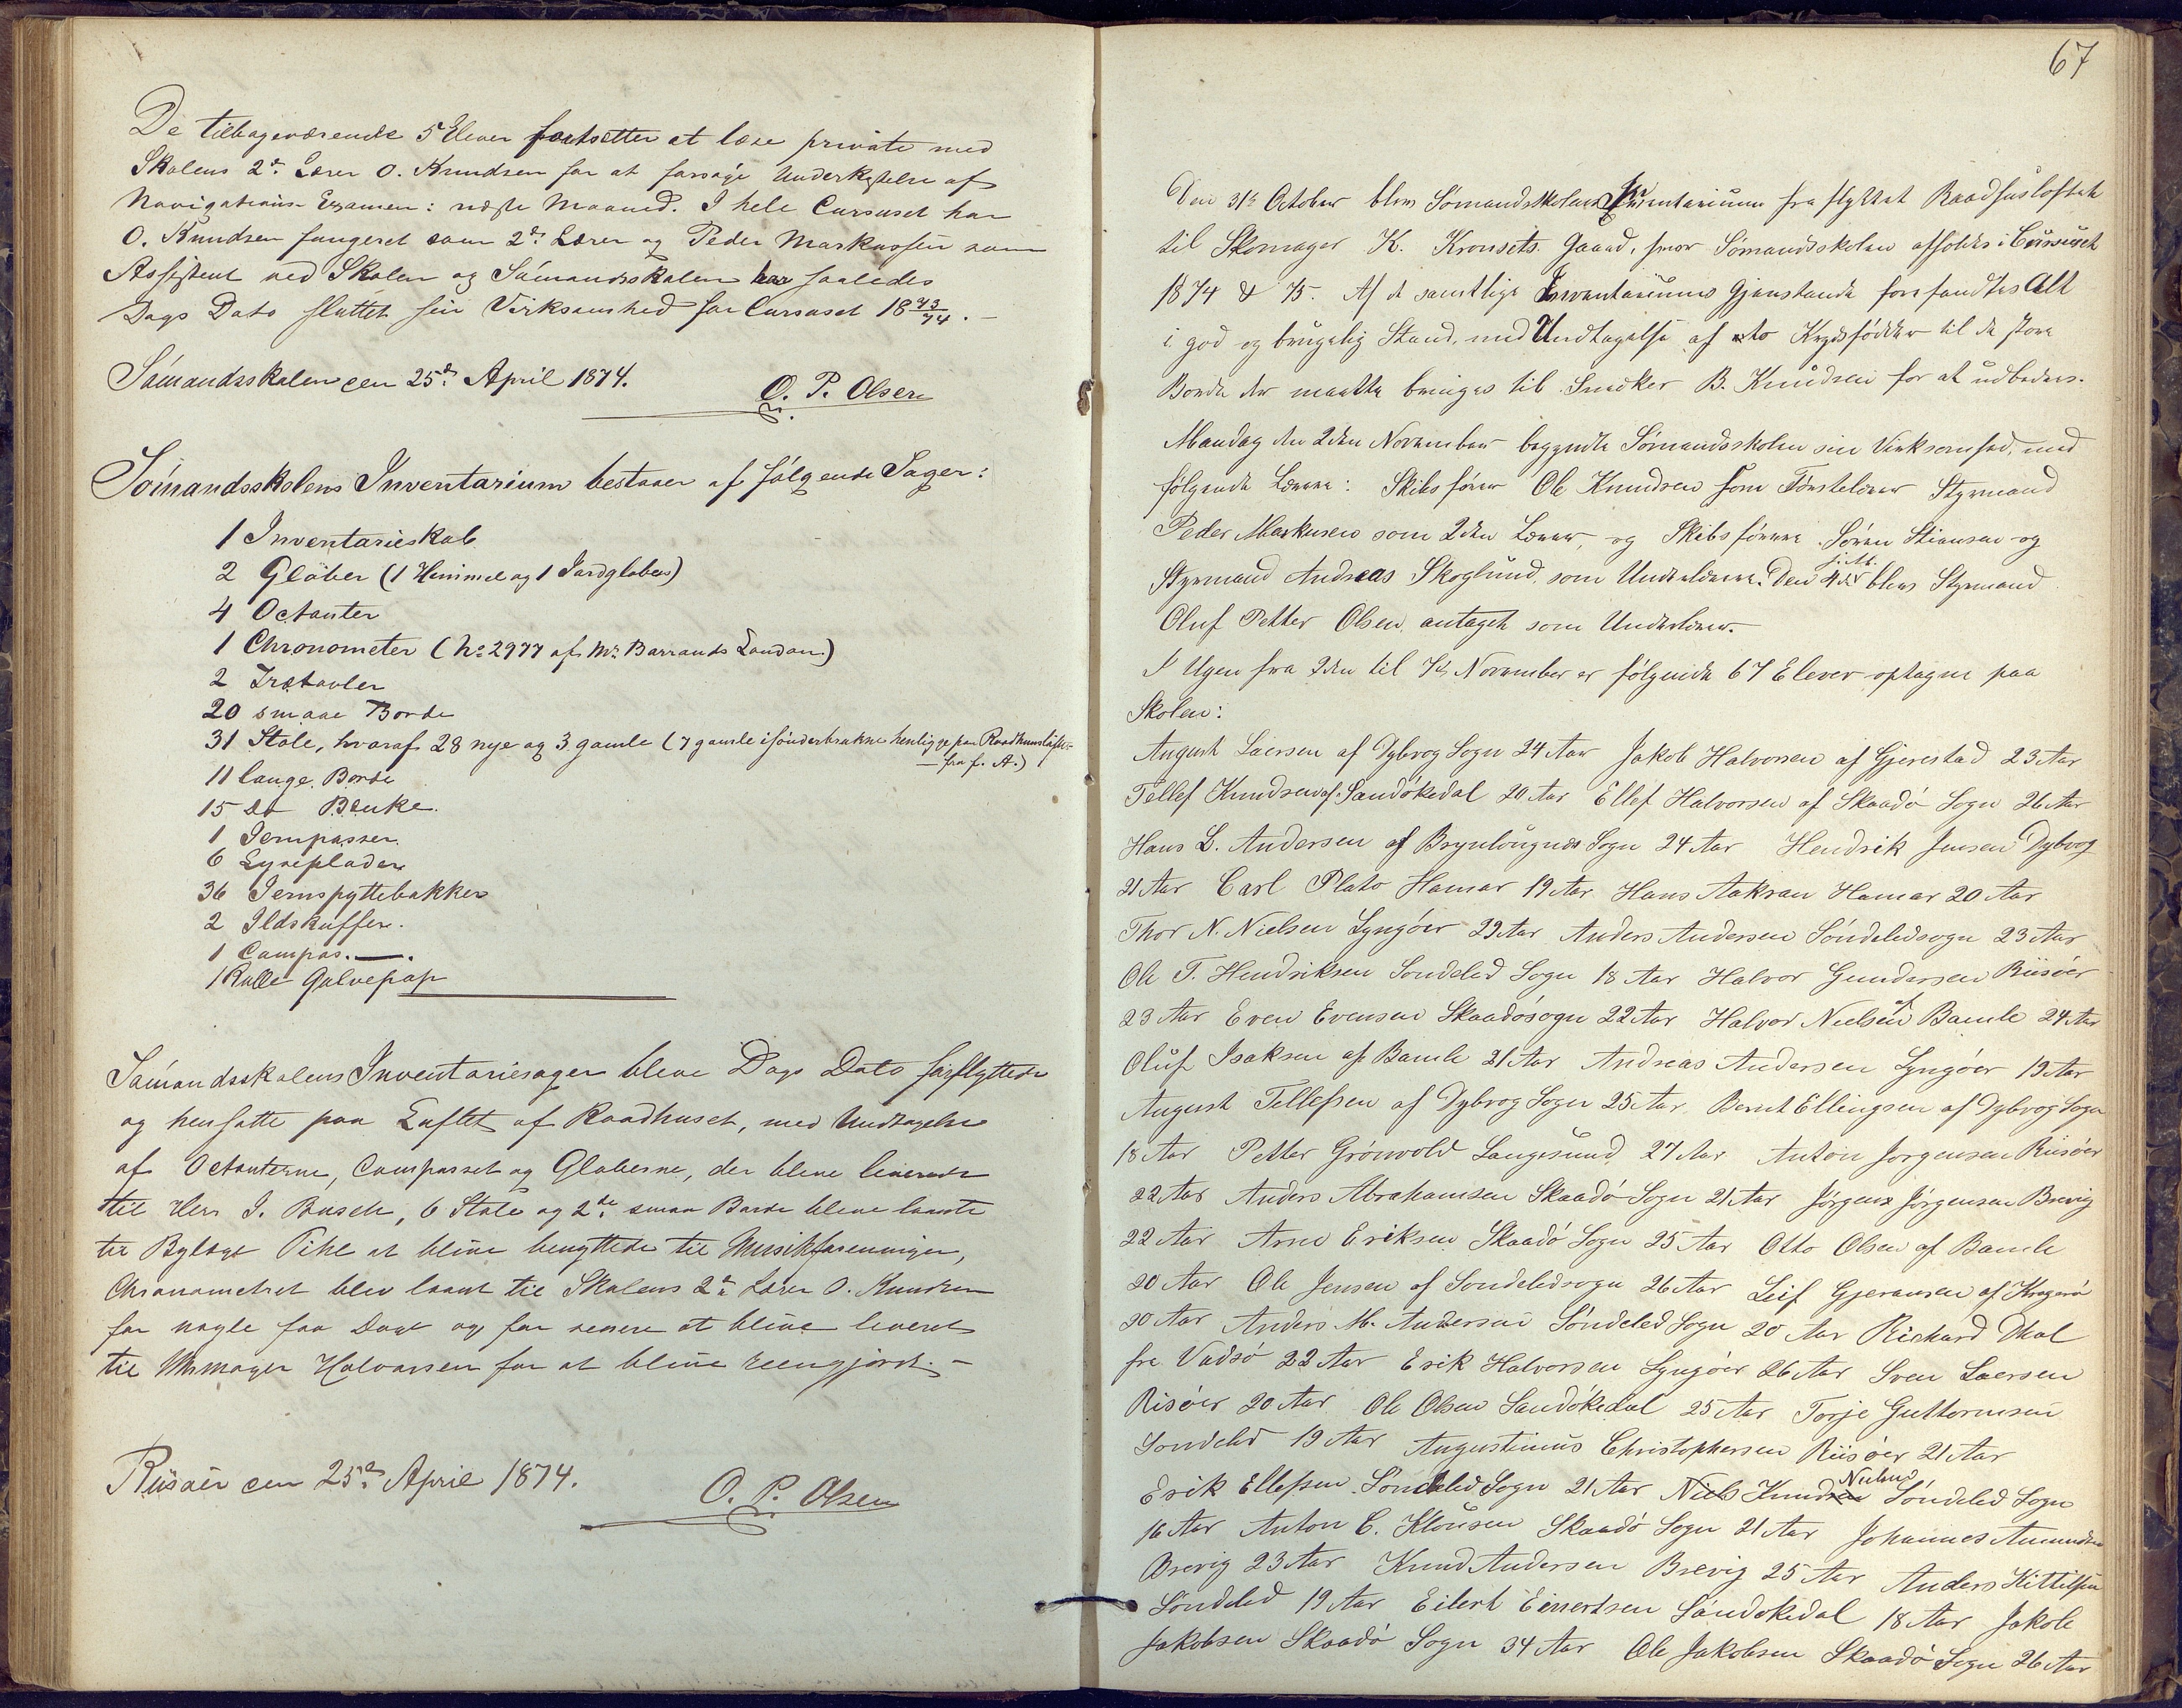 De tilbageværende 5 Elever fortsætter at læse private med
Skolens 2den Lærer O. Knudsen for at forsøge Underkastelse af
Navigations Examen i næste Maaned. I hele Cursuset har
O. Knudsen fungeret som 2den Lærer og Peder Markussen som
Assistent ved Skolen og Sømandsskolen har saaledes
Dags Dato sluttet sin Virksomhed for Cursuset 18 73/74. –
Sømandsskolen den 25de April 1874.
O. P. Olsen
Sømandsskolens Inventarium bestaaer af følgende Sager:
1 Inventarieskab
2 Glober (1 Himmel og 1 Jordglobus)
4 Octanter
1 Chronometer (No 2977 af Mr Barrauds London)
2 Trætavler
20 smaae Borde
31 Stole, hvoraf 28 nye og 3 gamle (7 gamle isønderbrukne henligge paa Raadhuusloftet
fra f. A.)
11 lange Borde
15 do Bænke.
1 Jernpasser
6 Lyseplader
36 Jernspyttebakker
2 Ildskuffer.
1 Campas. —.
1 Rulle Gulvepap
Sømandsskolens Inventariesager bleve Dags Dato forflyttede
og hensatte paa Loftet af Raadhuset, med Undtagelse
af Octanterne, Compasset og Globerne, der bleve leverede
til Herr J. Busch, 6 Stole og 2de smaa Borde bleve laante
til Bylæge Pihl at blive benyttede til Musikforeningen,
Chronometret blev laant til Skolens 2den Lærer O. Knudsen
for nogle faa Dage og for senere at blive leveret
til Uhrmager Halvorsen for at blive reengjørt. –
Riisøer den 25de April 1874.
O. P. Olsen
67
Den 31te October blev Sømandsskolens Inventarium fra flyttet Raadhusloftet
til Skomager K. Kronsets Gaard, hvor Sømandsskolen afholdes i Cursuset
1874 & 75. Af de samtlige Inventariums Gjenstande forefandtes Alt
i god og brugelig Stand, med Undtagelse af to Krydsfødder til de store
Borde der maatte bringes til Snedker B. Knudsen for at udbedres.
Mandag den 2den November begyndte Sømandsskolen sin Virksomhed, med
følgende Lærere: Skibsfører Ole Knudsen som Førstelærer Styrmand
Peder Markusen som 2den Lærer, og Skibsførerne Søren Stiansen og
Styrmand Andreas Skoglund som Underlærere. Den 4de blev Styrmand
Oluf Petter Olsen antaget som Underlærer.
I Ugen fra 2den til 7de November er følgende 67 Elever optagne paa
Skolen:
August Laersen af Dybvog Sogn 24 Aar Jakob Halvorsen af Gjerestad 23 Aar
Tellef Knudsen af Sandøkedal 20 Aar Ellef Halvorsen af Skaadø Sogn 26 Aar
Hans L. Andersen af Sogn 24 Aar Hendrik Jensen Dybvog
21 Aar Carl Plato Hamar 19 Aar Hans Aakran Hamar 20 Aar
Thor N. Nielsen Lyngøer 22 Aar Anders Andersen Søndeledsogn 23 Aar
Ole T. Hendriksen Søndeled Sogn 18 Aar Halvor Gundersen Riisøer
23 Aar Even Evensen Skaadøsogn 22 Aar Halvor Nielsen af Bamle 24 Aar
Oluf Isaksen af Bamle 21 Aar Andreas Andersen Lyngøer 19 Aar
August Tellefsen af Dybvog Sogn 25 Aar Bernt Ellingsen af Dybvog Sogn
18 Aar Petter Grönvold Langesund 27 Aar Anton Jørgensen Riisøer
22 Aar Anders Abrahamsen Skaadø Sogn 21 Aar Jørgen Jørgensen Brevig
22 Aar Arne Eriksen Skaadø Sogn 25 Aar Otto Olsen af Bamle
20 Aar Ole Jensen af Søndeledsogn 26 Aar Leif Gjeransen af Kragerø
20 Aar Anders M. Andersen Søndeled Sogn 20 Aar Richard Dkal
fra Vadsø 22 Aar Erik Halvorsen Lyngøer 26 Aar Sven Laersen
Risøer 20 Aar Ole Olsen Sandøkedal 25 Aar Torje Guttormsen
Søndeled 19 Aar Augustinus Christophersen Riisøer 21 Aar
Erik Ellefsen Søndeled Sogn 21 Aar Niels Knudsen Nielsen Søndeled Sogn
16 Aar Anton C. Klousen Skaadø Sogn 21 Aar Johannes Amundsen
Brevig 23 Aar Knud Andersen Brevig 25 Aar Anders Kittilsen
Søndeled 19 Aar Eilert Einertsen Sandøkedal 18 Aar Jakob
Jakobsen Skaadø Sogn 34 Aar Ole Jakobsen Skaadø Sogn 26 Aar